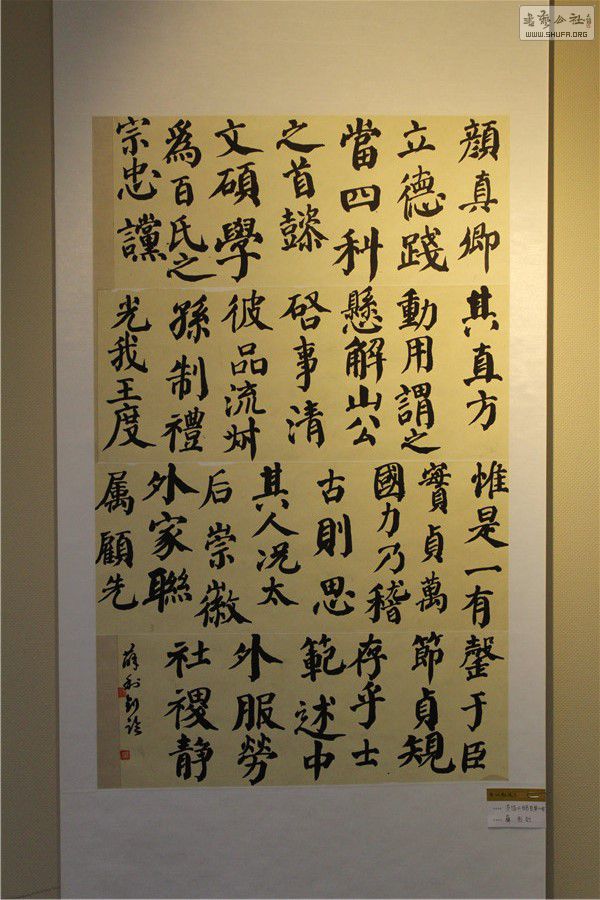 顔真卿
立德踐
當四科
之首懿
文碩學
爲百氏之
宗忠讜
其直方
動用謂之
懸解山公
啓事清
彼品流叔
孫制禮
光我王度
惟是一有
實貞萬
國力乃稽
古則思
其人况太
后崇徽
外家聯
属顧先
罄于臣
節貞規
存乎士
範述中
外服勞
社稷静
書藝公社
WWW.SHUFA.ORG